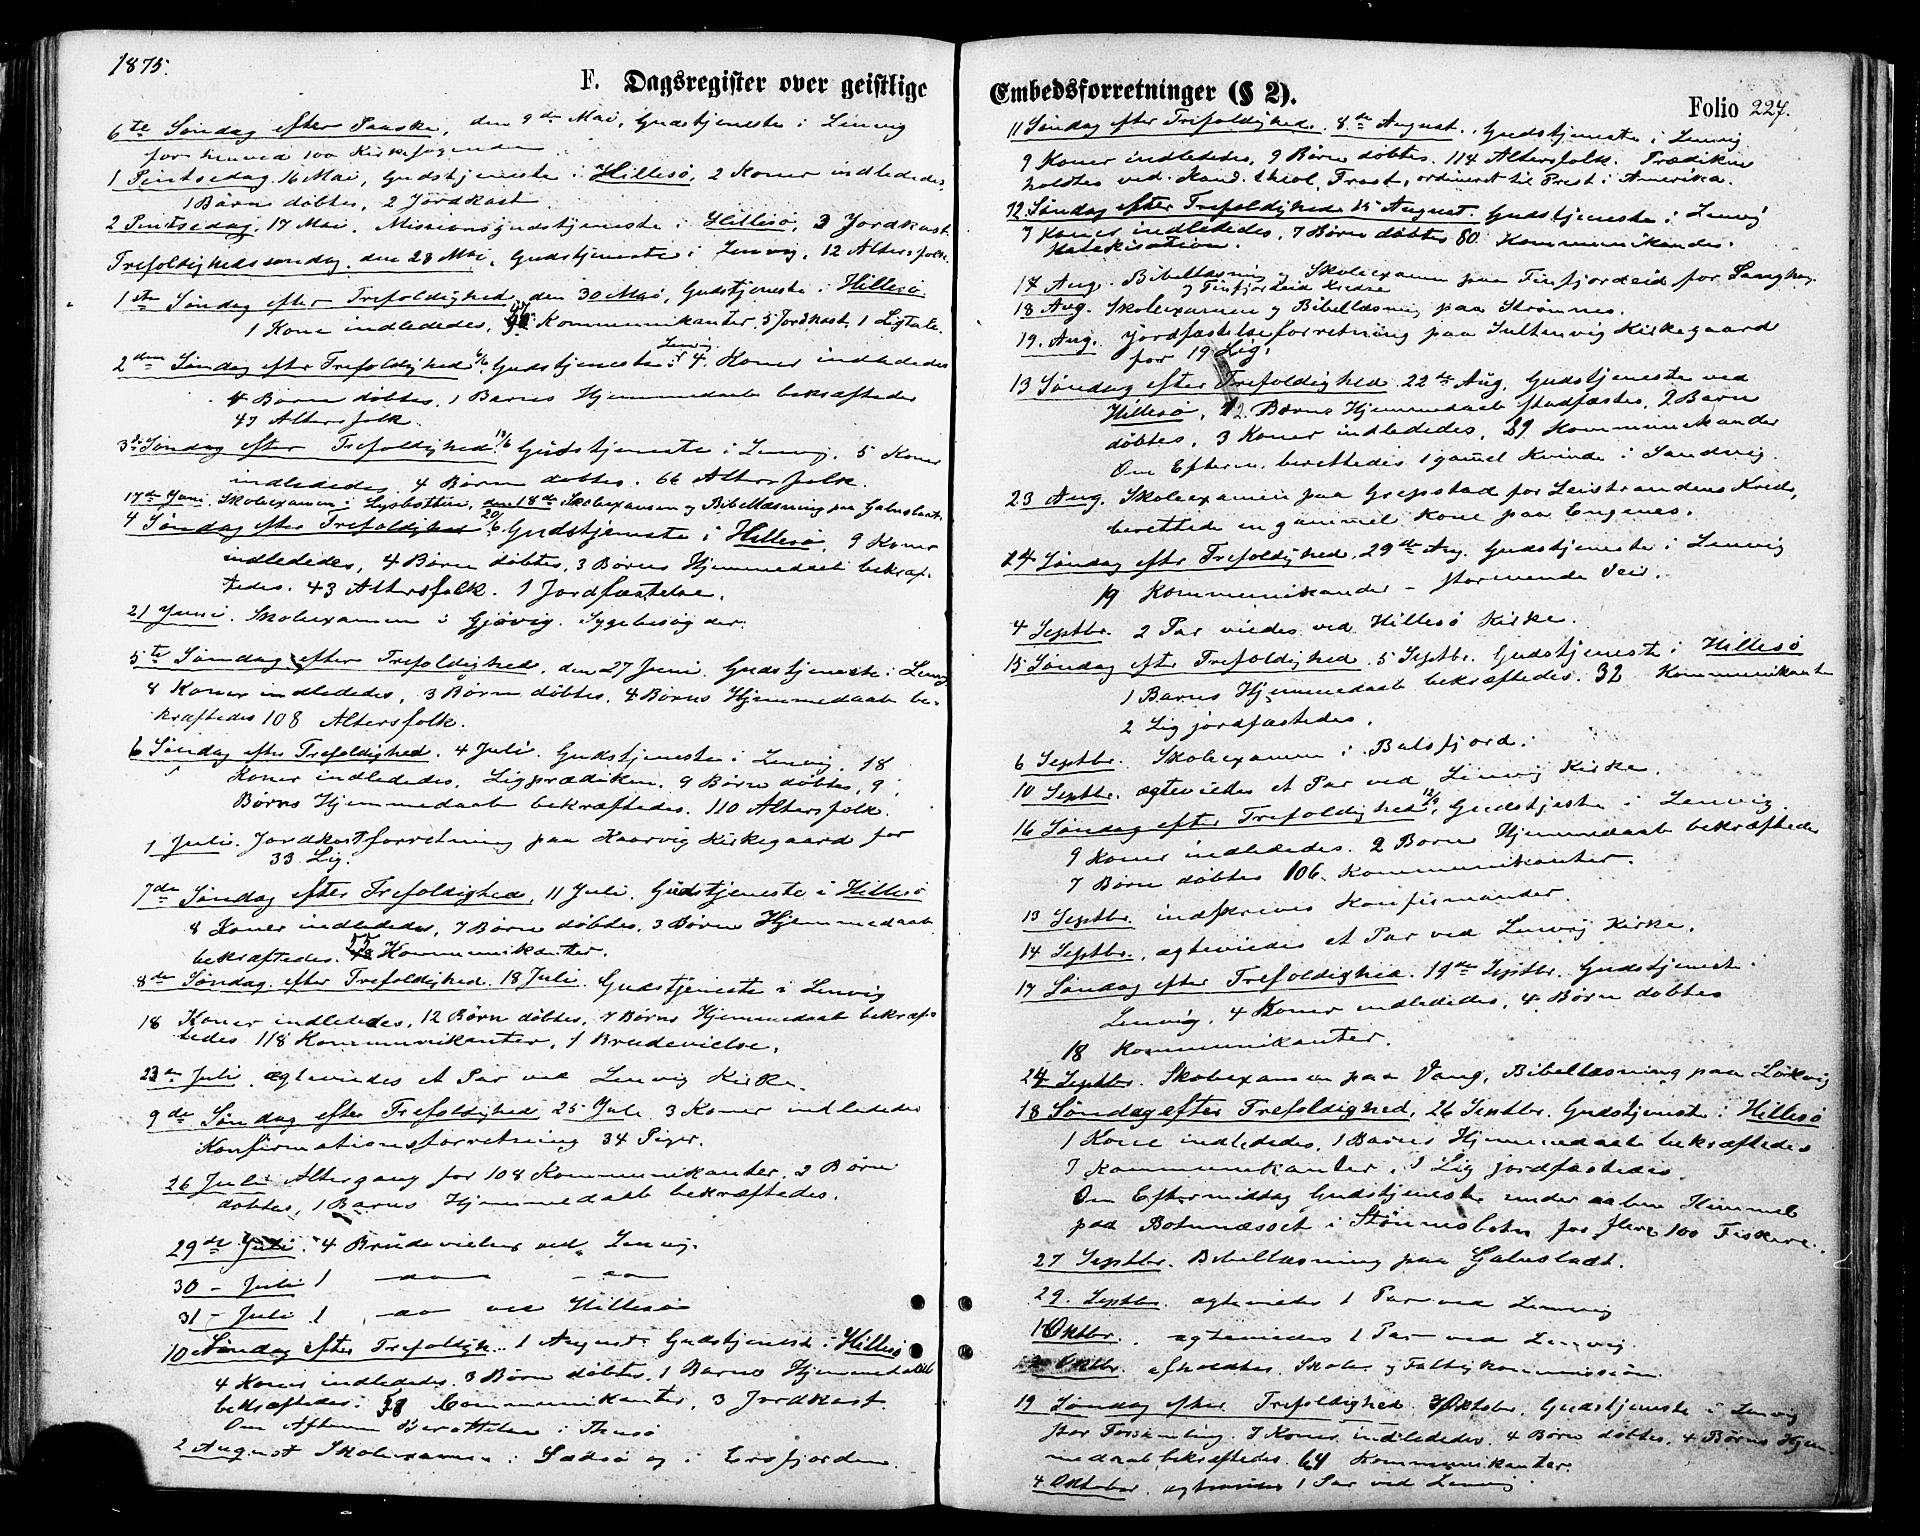 1875.
F. Dagsregister over geistlige
6te Søndag efter Paaske, den 9de Mai, Gudstjeneste i Lenvig
for henved 100 Kirkesøgende
1 Pintsedag 16 Mai, Gudstjeneste i Hillesø, 2 Koner indlededes,
1 Barn døbtes, 2 Jordkast
2 Pintsedag, 17 Mai, Missionsgudstjeneste i Hillesø, 3 Jordkast
Trefoldighedssøndag, den 23 Mai, Gudstjeneste i Lenvig, 12 Altersfolk.
1ste Søndag efter Trefoldighed den 30 Mai, Gudstjeneste i Hillesø
1 Kone indlededes, Kommunikanter, 5 Jordkast, 1 Ligtale.
2den Søndag efter Trefoldighed 6/6 Gudstjeneste i Lenvig 4 Koner indlededes
4 Børn døbtes, 1 Barns Hjemmedaab bekræftedes
43 Altersfolk.
3de Søndag efter Trefoldighed 13/6 Gudstjeneste i Lenvig, 5 Koner
indlededes 4 Børn døbtes. 66 Altersfolk.
17de Juni. Skoleexamen i Lysbotten, den 18de Skoleexamen og Bibellæsning paa
4 Søndag efter Trefoldighed 20/6 Gudstjeneste i Hillesø, 9 Koner
indlededes, 4 Børn døbtes, 3 Børns Hjemmedaab bekræf-
tedes. 43 Altersfolk. 1 Jordfæstelse.
21 Juni. Skoleexamen i Gjøvig. Sygebesøg der.
5te Søndag efter Trefoldighed, den 27 Juni Gudstjeneste i Lenvig
8 Koner indlededes, 3 Børn døbtes, 4 Børns Hjemmedaab be-
kræftedes 108 Altersfolk.
6 Søndag efter Trefoldighed. 4 Juli. Gudstjeneste i Lenvig, 18
Koner indlededes, Ligprædiken, 9 Børn døbtes, 9
Børns Hjemmedaab bekræftedes. 110 Altersfolk.
1 Juli. Jordkastforretning paa Haarvig Kirkegaard for
33 Lig.
7de Søndag efter Trefoldighed, 11 Juli. Gudstjeneste i Hillesø
8 Koner indlededes, 7 Børn døbtes, 3 Børns Hjemmedaab
bekræftedes. Kommunikanter.
8de Søndag efter Trefoldighed. 18 Juli. Gudstjeneste i Lenvig
18 Koner indlededes, 12 Børn døbtes, 7 Børns Hjemmedaab bekræf-
tedes 118 Kommunikanter, 1 Brudevielse.
23de Juli ægteviedes et Par ved Lenvig Kirke.
9de Søndag efter Trefoldighed 25 Juli 3 Koner indlededes
Konfirmationsforretning 34 Piger.
26 Juli Altergang for 108 Kommunikanter, 2 Børn
døbtes, 1 Barns Hjemmedaab bekræftedes.
29de Juli. 4 Brudevielser ved Lenvig.
30 – Juli 1 – do – do
31 – Juli 1 – do ved Hillesø
10 Søndag efter Trefoldigh. 1 August Gudstjeneste i Hillesø
4 Koner indlededes 3 Børn døbtes, 1 Barns Hjemmedaab
bekræftedes. 58 Communikanter, 3 Jordkast
Om Aftenen Berettelse i Thusø
2 August Skoleexamen i Sædsø og i Ersfjorden.
Embedsforretninger (§ 2).
Folio 227.
11 Søndag efter Trefoldighed. 8de August. Gudstjeneste i Lenvig
9 Koner indlededes, 9 Børn døbtes. 114 Altersfolk. Prædiken
holdtes ved Kand. theol. Frost, ordineret til Prest i Amerika.
12 Søndag efter Trefoldighed 15 August. Gudstjeneste i Lenvig
7 Koner indlededes, 7 Børn døbtes 80 Kommunikandes.
Katekisation.
17 Aug. Bibellæsning og Skoleexamen paa Finfjordeid for
og Finfjordeid Kredse
18 Aug. Skoleexamen og Bibellæsning paa Strømnes.
19. Aug. Jordfæstelseforretning paa Sultenvig Kirkegaard
for 19 Lig.
13 Søndag efter Trefoldighed. 22de Aug. Gudstjeneste ved
Hillesø, 2 Børns Hjemmedaab stadfæstes, 2 Børn
døbtes, 3 Koner indlededes, 29 Kommunikander
Om Efterm. berettedes 1 gamel Kvinde i Sandvig.
23 Aug. Skoleexamen paa Grepstad for Leistrandens Kreds,
berettede en gammel Kone paa Engenes.
14 Søndag efter Trefoldighed. 29de Aug. Gudstjeneste i Lenvig
19 Kommunikander – stormende Veir.
4 Septbr. 2 Par viedes ved Hillesø Kirke.
15 Søndag efter Trefoldighed. 5 Septbr. Gudstjeneste i Hillesø
1 Barns Hjemmedaab bekræftedes. 32 Kommunikanter
2 Lig jordfæstedes.
6 Septbr. Skoleexamen i Balsfjord.
10 Septbr. ægteviedes et Par ved Lenvig Kirke.
16 Søndag efter Trefoldighed 12/9, Gudstjeste i Lenvig
9 Koner indlededes. 2 Børns Hjemmedaab bekræftedes
7 Børn døbtes 106 Kommunikanter.
13 Septbr. indskreves Konfirmander.
14 Septbr. ægteviedes et Par ved Lenvig Kirke.
17 Søndag efter Trefoldighed. 19de Septbr. Gudstjenest i
Lenvig, 4 Koner indlededes, 4 Børn døbtes
18 Kommunikanter.
24 Septbr. Skoleexamen paa Vang, Bibellæsning paa Løkvig
18 Søndag efter Trefoldighed, 26 Septbr. Gudstjeneste i Hillesø
1 Kone indlededes, 1 Barns Hjemmedaab bekræftedes
7 Kommunikanter, 1 Lig jordfæstedes.
Om Eftermiddag Gudstjeneste under aaben Himmel
paa Botnnæsset i for flere 100 Fiskere.
27 Septbr. Bibellæsning paa
29. Septbr. ægteviedes 1 Par ved Lenvig
1 Oktbr. ægteviedes 1 Par ved Lenvig.
2 Oktbr. afholdtes Skole og Fattigkommission.
19 Søndag efter Trefoldighed 3 Oktober. Gudstjeneste i Lenvig
stor Forsamling. 7 Koner indlededes. 4 Børn døbtes, 4 Børns Hjem-
medaab bekræftedes. 64 Kommunikanter.
4 Oktober ægteviedes 1 Par ved Lenvig.